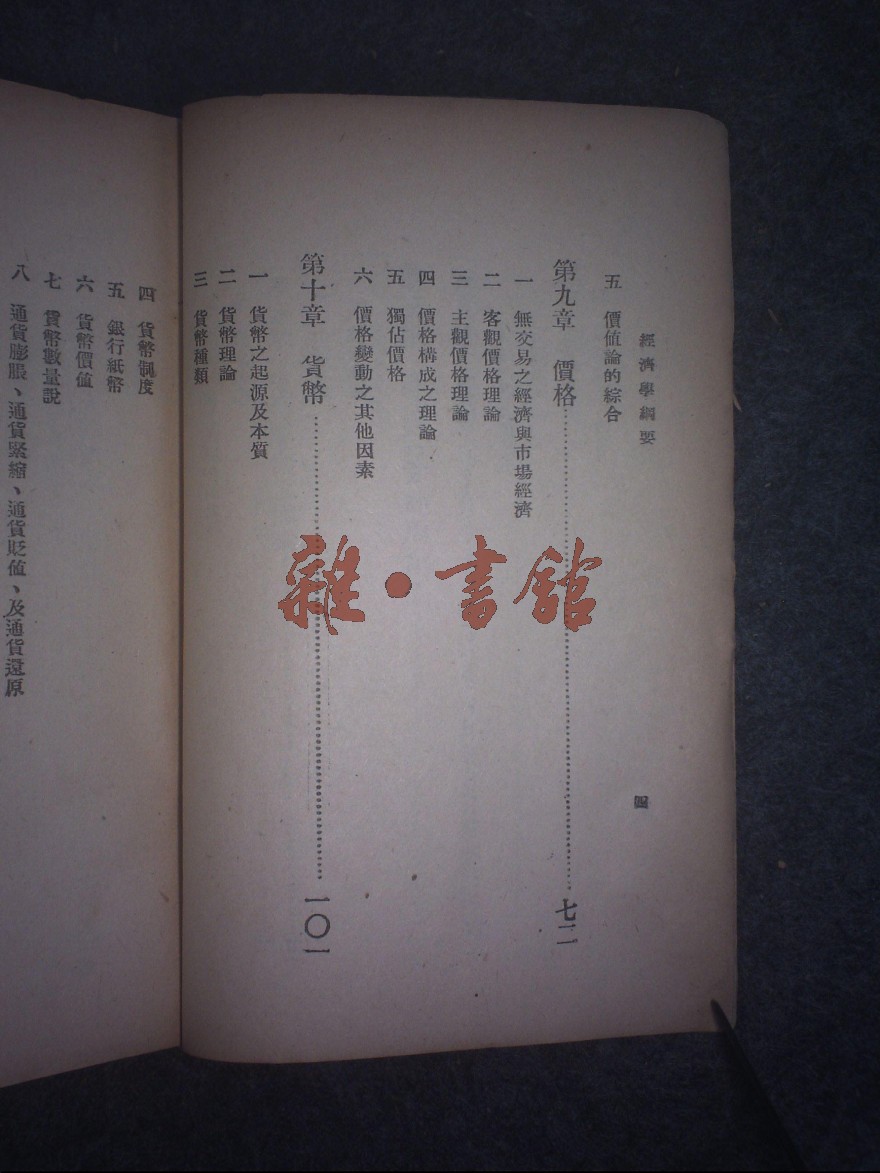 經濟學綱要
四
五 價值論的綜合
第九章 價格……七二
一 無交易之經濟與市場經濟
二 客觀價格理論
三 主觀價格理論
四 價格構成之理論
五 獨佔價格
六 價格變動之其他因素
第十章 貨幣……一〇一
一 貨幣之起源及本質
二 貨幣理論
三 貨幣種類
四 貨幣制度
五 銀行紙幣
六 貨幣價值
七 貨幣數量說
八 通貨膨脹、通貨緊縮、通貨貶值、及通貨還原
雜·書館